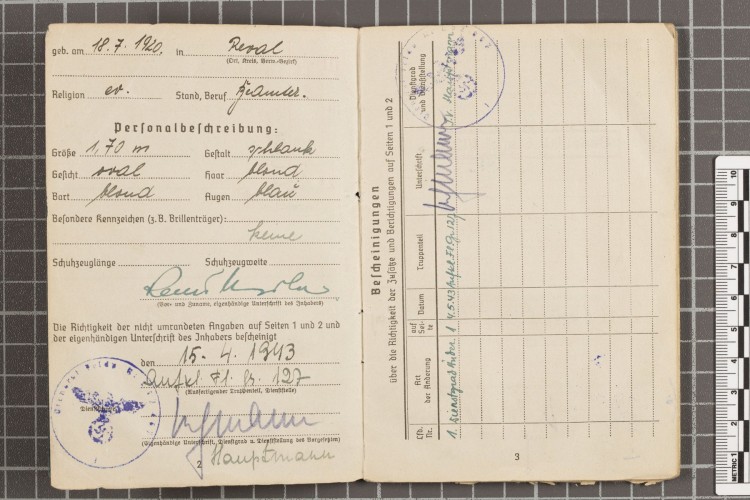 geb. am 18.7.1920. in Reval
(Ort, Kreis, Verw.-Bezirk)
Religion ev. Stand, Beruf Beamter.
Personalbeschreibung:
Größe 1,70 m Gestalt schlank
Gesicht oval Haar blond
Bart blond Augen blau
Besondere Kennzeichen (z. B. Brillenträger):
keine
Schuhzeuglänge Schuhzeugweite
(Vor- und Zuname, eigenhändige Unterschrift des Inhabers)
Die Richtigkeit der nicht umrandeten Angaben auf Seiten 1 und 2 und
der eigenhändigen Unterschrift des Inhabers bescheinigt
den 15. 4. 1943
Aufkl. Fl. Gr. 127
(Ausfertigender Truppenteil, Dienststelle)
(Eigenhändige Unterschrift, Dienstgrad u. Dienststellung des Vorgesetzten)
Hauptmann
2
Bescheinigungen
über die Richtigkeit der Zusätze und Berichtigungen auf Seiten 1 und 2
Lfd. Nr.
Art der Änderung
auf Seite
Datum
Truppenteil
Unterschrift
Dienstgrad und Dienststellung
1. Dienstgrad Änder. 1 4.5.43 Aufkl. Fl. Gr. 127
3
METRIC 1 2 3 4 5 6 7 8 9 10